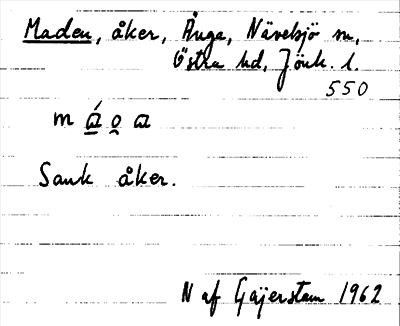 Maden, åker, Ånga, Nävelsjö sn,
Östra hd, Jönk. l.
550
Sank åker.
N af Geijerstam 1962